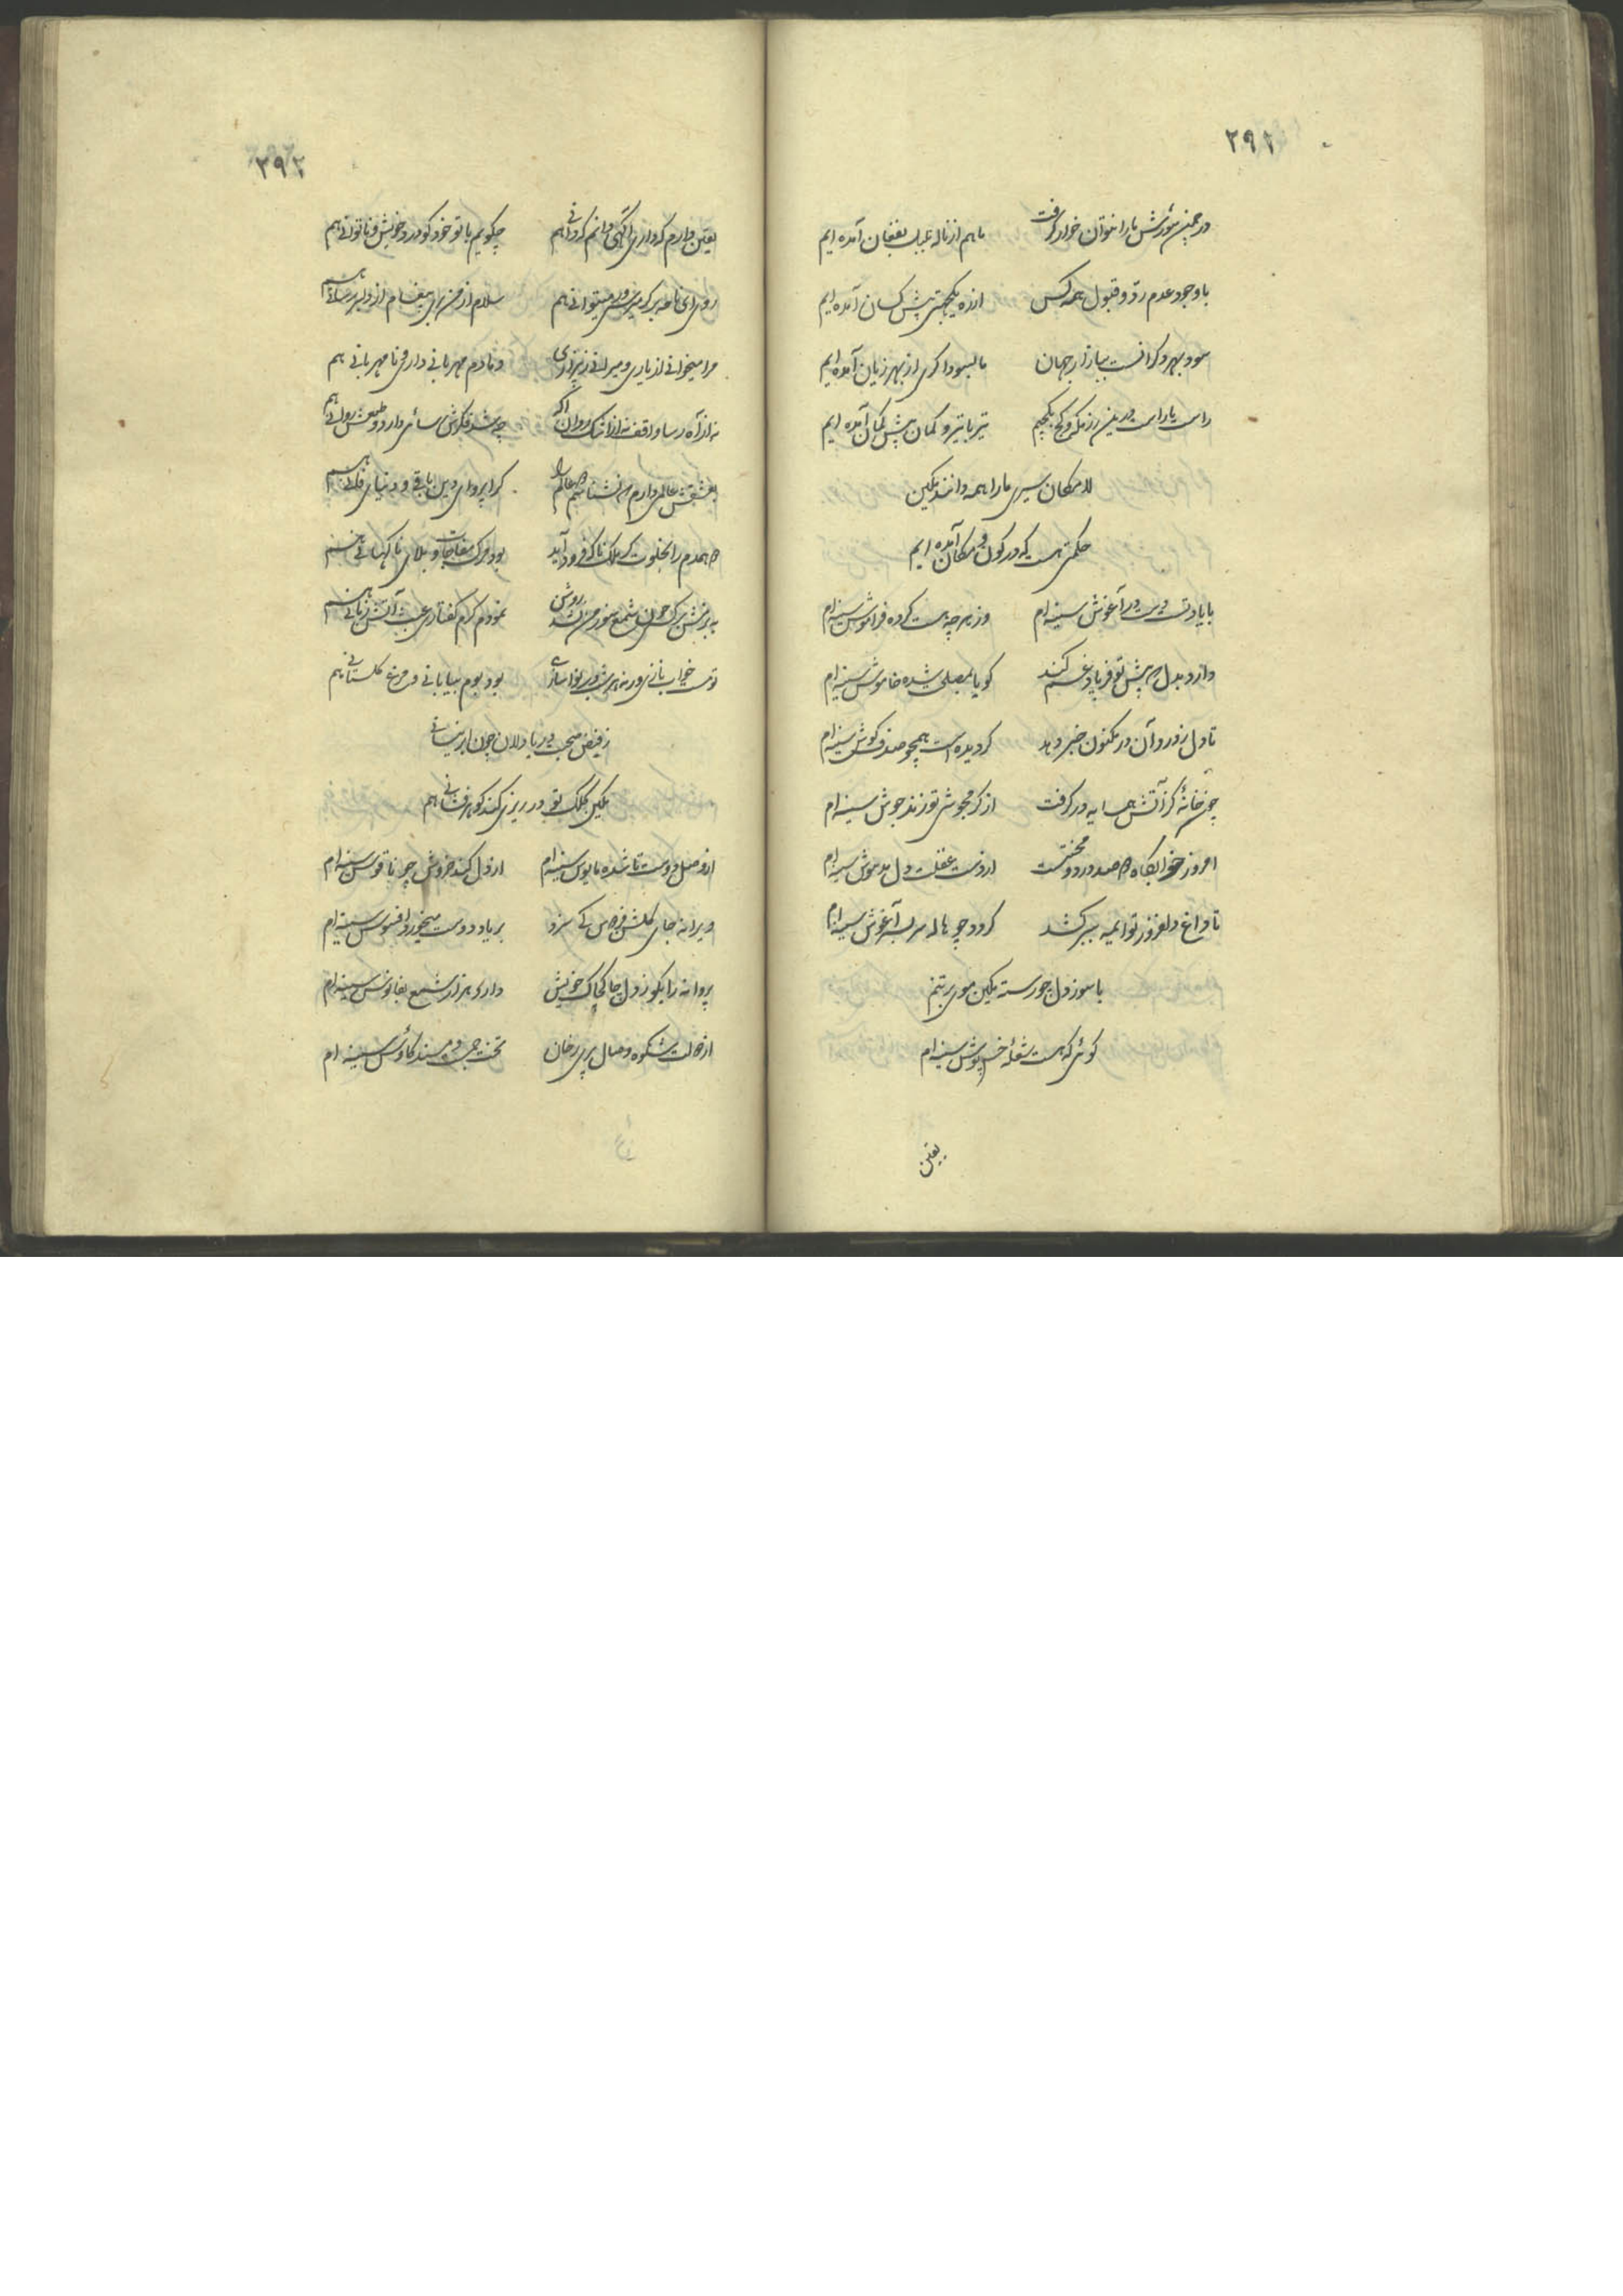 ۲۹۱
در چمن شورش ما را نتوان خوار گرفت ما هم از ناله بلبل بفغان آمده ایم
با وجود عدم رد و قبول همه کس از ره یکجهتی پیش کسان آمده ایم
سود بهر دگرانست ببازار جهان ما بسوداگری از بهر زیان آمده ایم
راست با راست درین رزمگه و کج با کجیم تیر با تیر و کمان پیش کمان آمده ایم
لامکان سیری ما را همه دانند مکین
حکمتی هست که در کون و مکان آمده ایم
با یاد تست دست در آغوش سینه ام وز هر چه هست کرده فراموش سینه ام
دارد بدل چه پیش تو فریاد غم کند گویا شده خاموش سینه ام
تا دل ز دور آن در مکنون خبر دهد گردیده است همچو صدف گوش سینه ام
چون خانهٔ کز آتش همسایه در گرفت از گرمجوشی تو زند جوش سینه ام
امروز خوابگاه صد درد و محنتست از دست عقلت دل مدهوش سینه ام
تا داغ دلفروز تو ببر کشد گردد چو هاله سر بسر آغوش سینه ام
با سوز دل چو رسته مکین موی بر تنم
گوئی که هست شعلهٔ خس پوش سینه ام
یقین
۲۹۲
یقین دارم که داری آگهی دانم که دانی هم چگویم با تو خود گو درد خویش و ناتوانی هم
روی ای نامه بر گر میتوانی هم سلام از من بری پیغام از دلبر رسانی هم
مرا میخوانی از یاری و میرانی ز بیزاری دمادم مهربانی داری و نامهربانی هم
نه از آه رسا واقف نه از اشک روان آگه چه شد فکرش رسائی دارد و طبعش روانی هم
بعشقش عالمی دارم که نشناسم عالم را کرا پروای دین باقی و دنیای فانی هم
همدم را بخلوت گر ملک ناگه فرود آید بود مرگ مفاجات و بلای ناگهانی هم
به بزمش گر چون شمع سوز من نشد روشن نمودم گرم گفتاری عبث آتش زبانی هم
بود بوم بیابانی و مرغ گلستانی هم
ز فیض صحبت دریا دلان چون ابر نیسانی
مکین کلک تو در ریزی کند گوهر فشانی هم
از وصل دوست تا شده مایوس سینه ام از دل کند خروش چو ناقوس سینه ام
ویرانه جای گلشن فردوس کی سزد بر یاد دوست میخورد افسوس سینه ام
پروانه را بگو ز دل چاکچاک خویش دارد هزار شمع بفانوس سینه ام
از دولت شکوه وصال پری رخان تخت جم است و مسند کاوس سینه ام